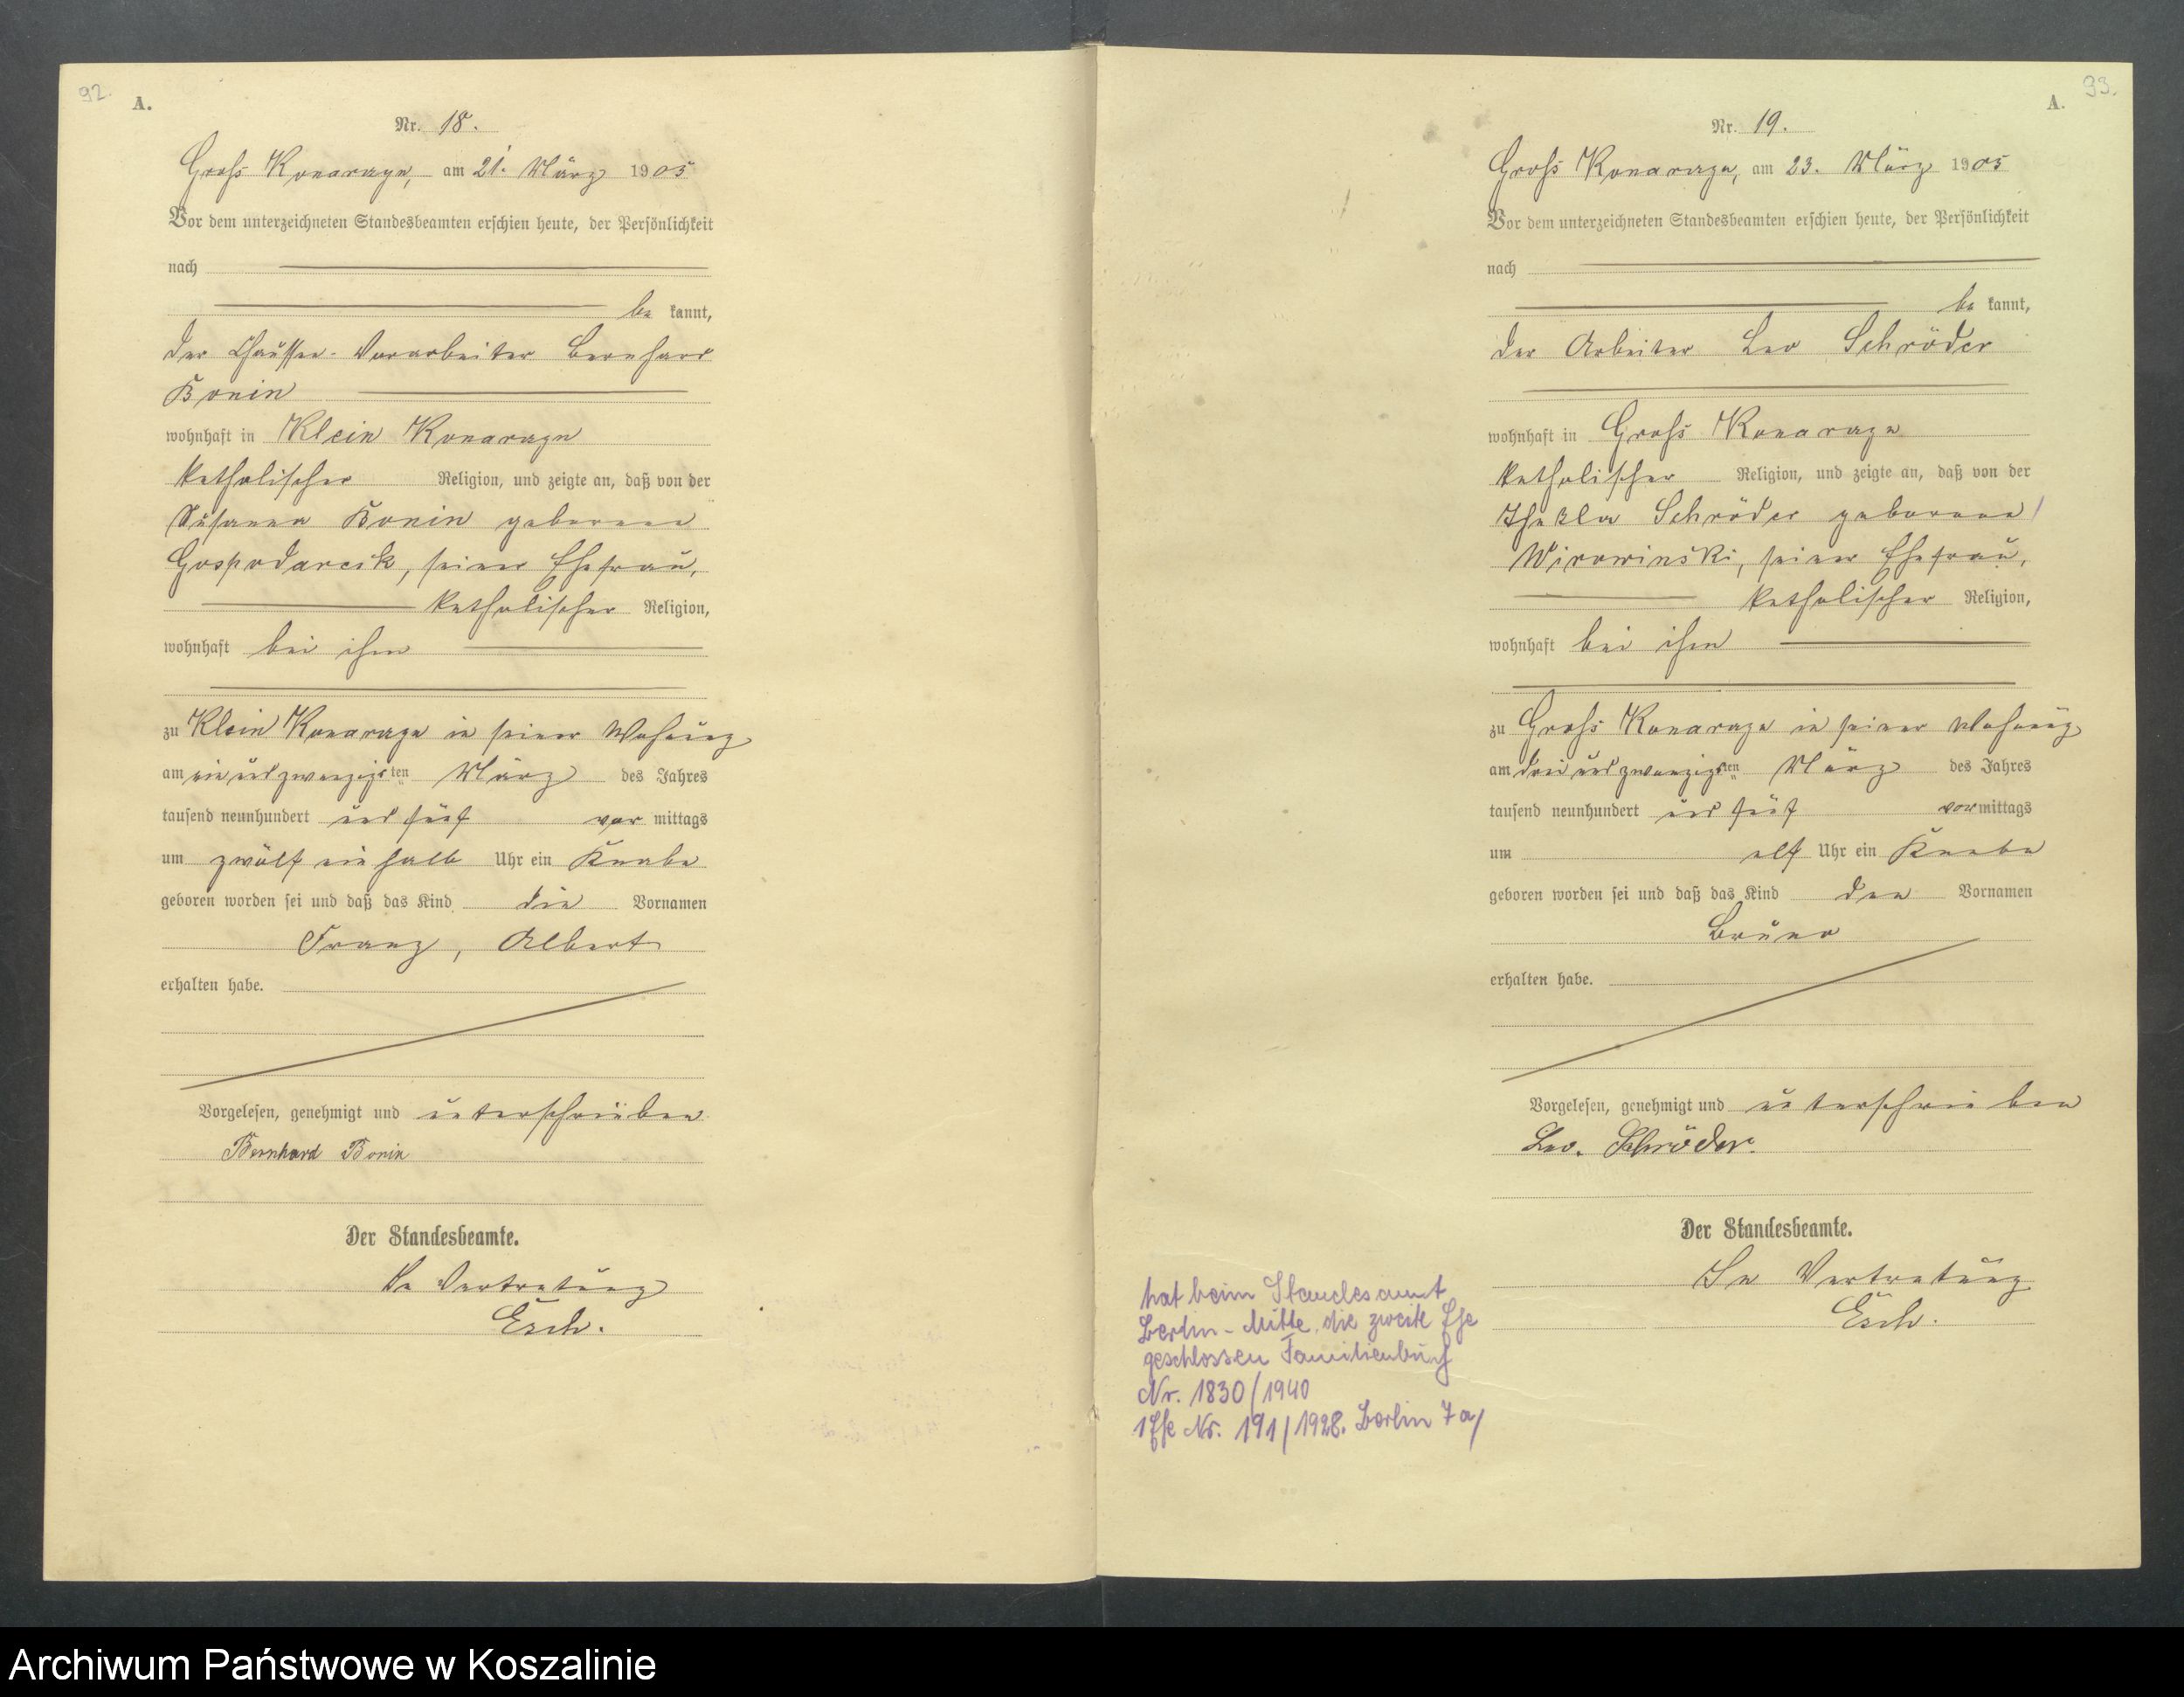 92.
A.
Nr. 18.
Gross Konarzyn, am 21. März 1905
Vor dem unterzeichneten Standesbeamten erschien heute, der Persönlichkeit
nach
be kannt,
der Chaussee-Vorarbeiter Bernhard
Bonin
wohnhaft in Klein Konarzyn
katholischer Religion, und zeigte an, daß von der
Susanna Bonin geborene
Gospodarcik, seiner Ehefrau,
katholischer Religion,
wohnhaft bei ihm
zu Klein Konarzyn in seiner Wohnung
am ein und zwanzigsten März des Jahres
tausend neunhundert und fünf vor mittags
um zwölf ein halb Uhr ein Knabe
geboren worden sei und daß das Kind die Vornamen
Franz, Albert
erhalten habe.
Vorgelesen, genehmigt und unterschrieben
Bernhard Bonin
Der Standesbeamte.
In Vertretung
Esch.
93.
A.
Nr. 19.
Gross Konarzyn, am 23. März 1905
Vor dem unterzeichneten Standesbeamten erschien heute, der Persönlichkeit
nach
be kannt,
der Arbeiter Leo Schröder
wohnhaft in Gross Konarzyn
katholischer Religion, und zeigte an, daß von der
Thekla Schröder geborene
Wirowinski, seiner Ehefrau,
katholischer Religion,
wohnhaft bei ihm
zu Gross Konarzyn in seiner Wohnung
am drei und zwanzigsten März des Jahres
tausend neunhundert und fünf vor mittags
um elf Uhr ein Knabe
geboren worden sei und daß das Kind den Vornamen
Bruno
erhalten habe.
Vorgelesen, genehmigt und unterschrieben
Leo. Schröder.
Der Standesbeamte.
In Vertretung
Esch.
hat beim Standesamt
Berlin-Mitte die zweite Ehe
geschlossen Familienbuch
Nr. 1830/1940
1 Ehe Nr. 191/1928. Berlin 7a/
Archiwum Państwowe w Koszalinie